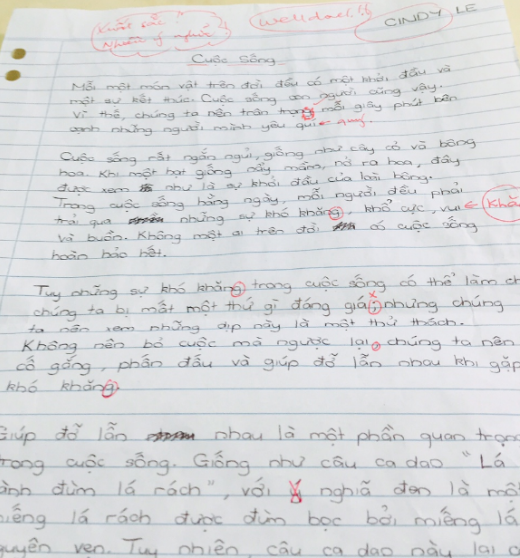 Xuất sắc
Nhiều ý nghĩa
Well done!
CINDY LE
Cuộc Sống
Mỗi một món vật trên đời đều có một khởi đầu và
một sự kết thúc. Cuộc sống con người cũng vậy.
Vì thế, chúng ta nên trân trọng mỗi giây phút bên
cạnh những người mình yêu quí quý.
Cuộc sống rất ngắn ngủi, giống như cây cỏ và bông
hoa. Khi một hạt giống nảy mầm, nở ra hoa, đấy
được xem như là sự khởi đầu của loài bông.
Trong cuộc sống hằng ngày, mỗi người đều phải
trải qua những sự khó khăng, khổ cực, vui
và buồn. Không một ai trên đời có cuộc sống
hoàn hảo hết.
Tuy những sự khó khăng trong cuộc sống có thể làm ch
chúng ta bị mất một thứ gì đáng giá, nhưng chúng
ta nên xem những dịp này là một thử thách.
Không nên bỏ cuộc mà ngược lại, chúng ta nên
cố gắng, phấn đấu và giúp đỡ lẫn nhau khi gặp
khó khăng.
Giúp đỡ lẫn nhau là một phần quan trọng
trong cuộc sống. Giống như câu ca dao "Lá
lành đùm lá rách", với nghĩa đen là một
miếng lá rách được đùm bọc bởi miếng lá
nguyên vẹn. Tuy nhiên, câu ca dao này lại